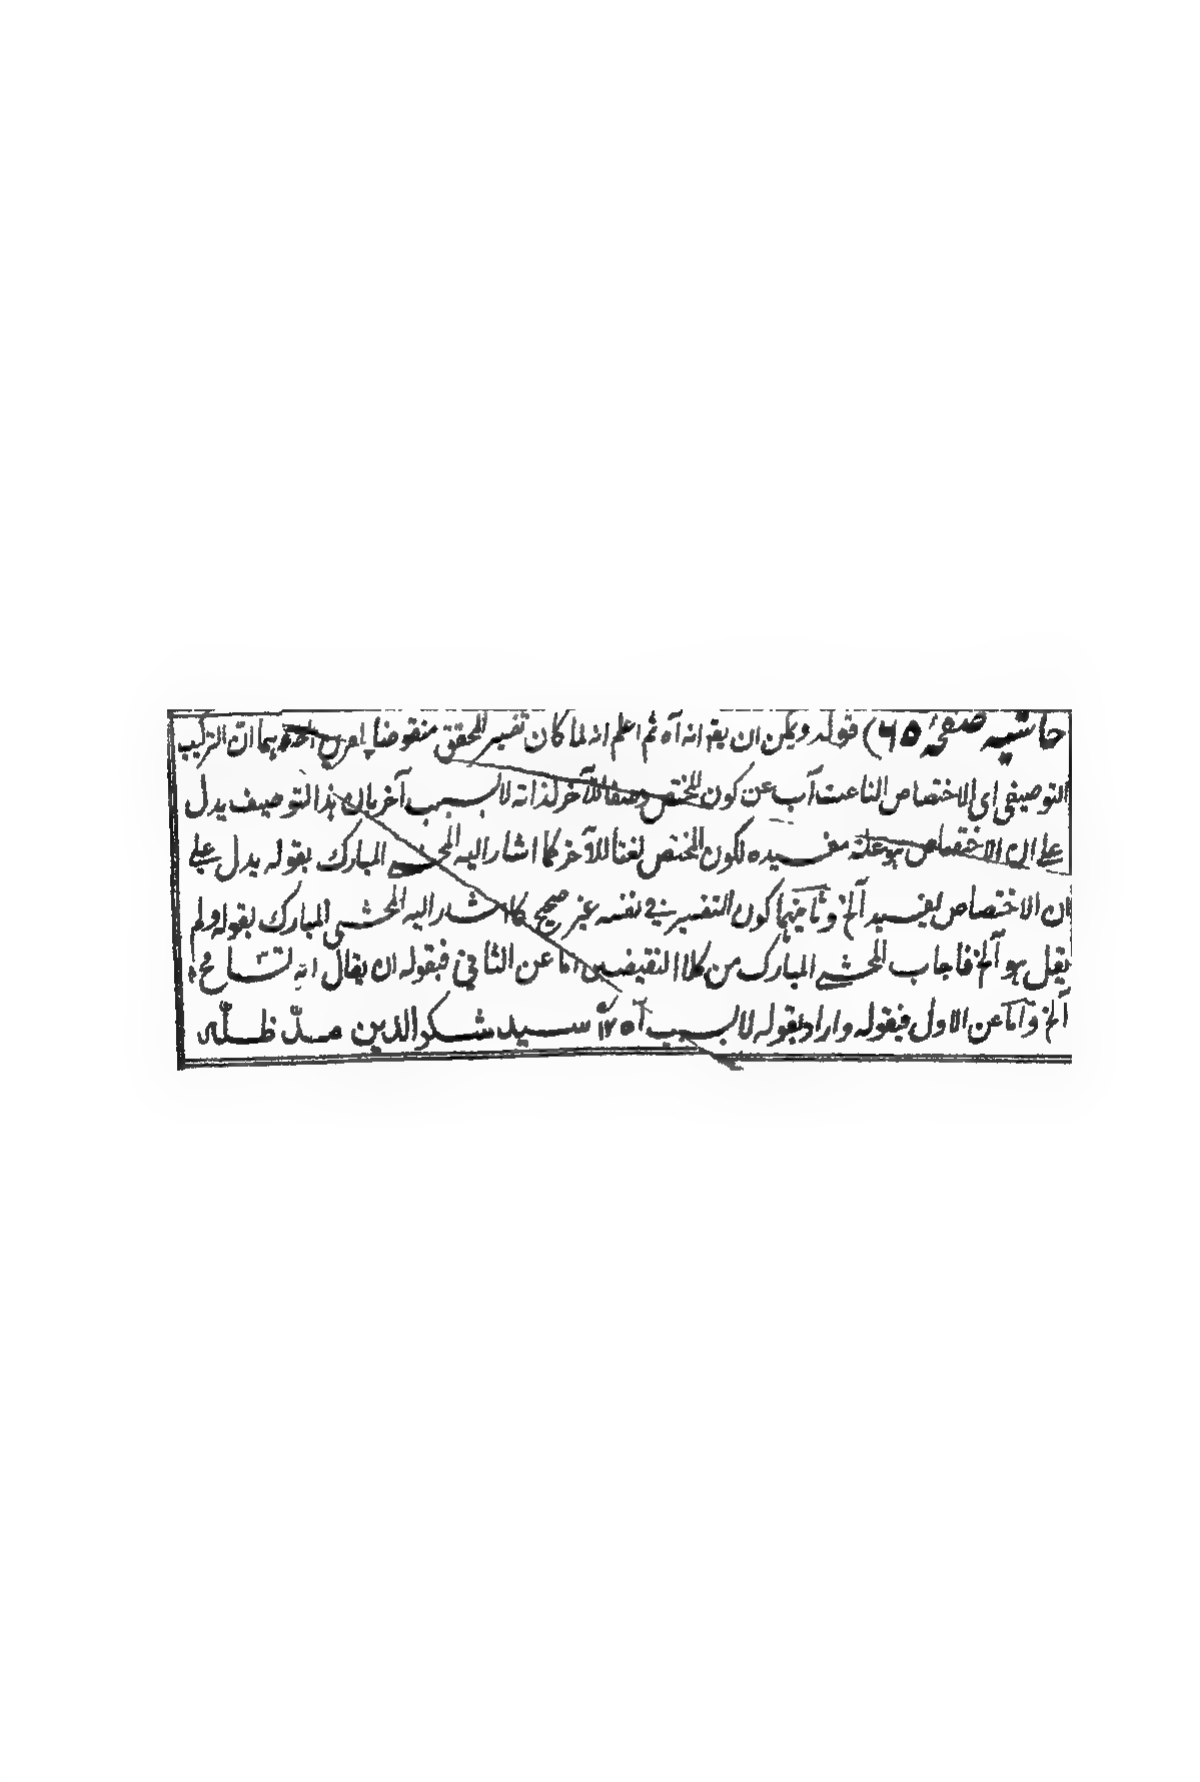 حاشيه صفحۂ ٦٥) قوله ويمكن ان يقر انه آه ثم اعلم انه لما كان تفسير المحقق منقوضا احدهما ان التركيب
التوصيفى اى الاختصاص الناعت آب عن كون المختص وصفا للآخر لذاته لا لسبب آخر بان هذا التوصيف يدل
على ان الاختصاص هو علة مفيده لكون المختص نعتا للآخر كما اشار اليه المحشى المبارك بقوله يدل على
ان الاختصاص يفيد آلخ وثانيهما كون التفسير فى نفسه غير صحيح كما اشار اليه المحشى المبارك بقوله ولم
يقل هو آلخ فاجاب المحشى المبارك من كلا النقيضين اما عن الثانى فبقوله ان يقال انه تسامح
آلخ وآما عن الاول فبقوله واراد بقوله لا لسبب آه ١٢ سيد شكر الدين مد ظله